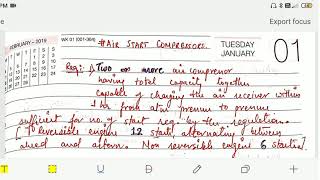 PM
Export focus
FEBRUARY - 2019
WK 01 (001-364)
TUESDAY
JANUARY 01
# AIR START COMPRESSORS
Req:- 1) Two or more air compressor
having total capacity together
capable of charging the air receiver within
1 hr from atm pressure to pressure
sufficient for no. of start req. by the regulation.
Reversible engine 12 starts alternating between
ahead and astern. Non reversible engine 6 starts